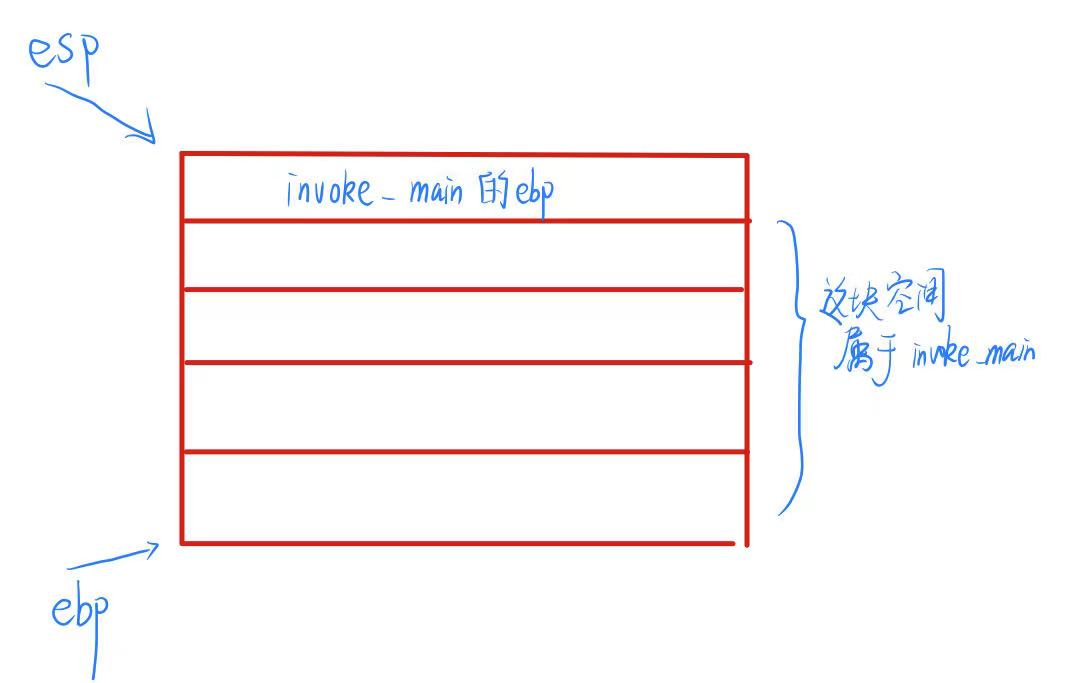 esp
invoke_main 的ebp
这块空间
属于 invoke_main
ebp